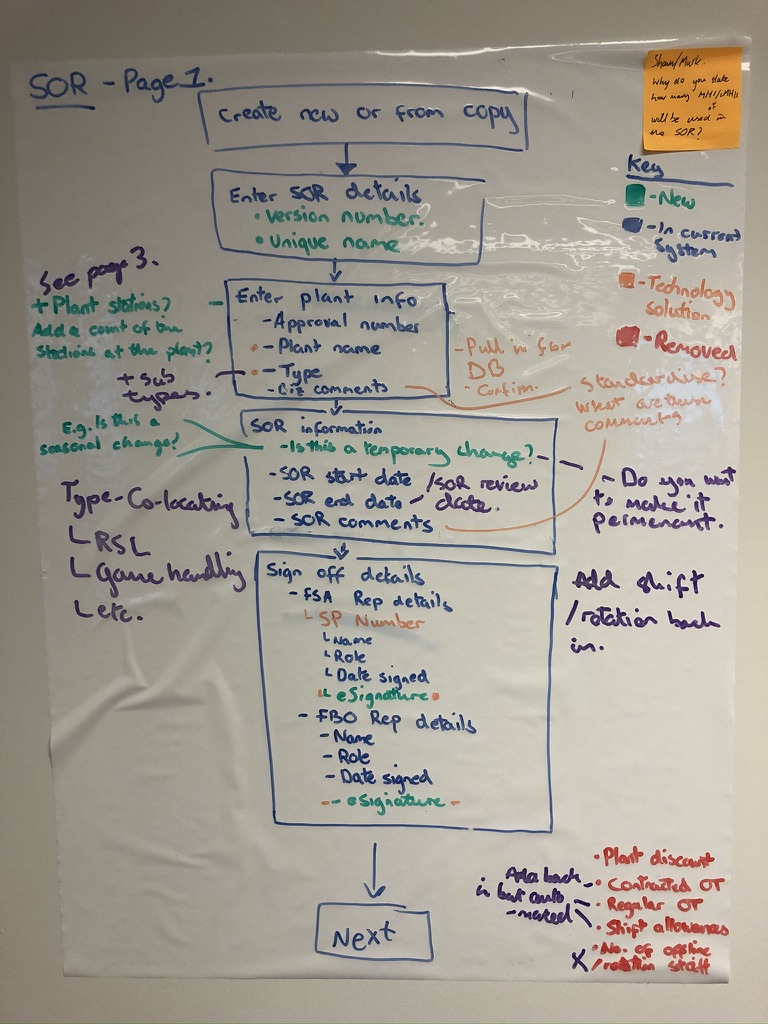 SOR - Page 1.
Shaun/Mark.
Why do you state
how many MHI/OMHIs
of
will be used in
the SOR?
Create new or from copy
Key
- New
- In current
System
- Technology
solution
- Removed
Enter SOR details
• Version number.
• Unique name
See page 3.
+ Plant stations?
Add a count of the
stations at the plant?
+ sub
types.
Enter plant info
- Approval number
- Plant name
- Type
- Biz comments
- Pull in from
DB
- Confirm.
Standardise?
What are these
comments
E.g. Is this a
seasonal change?
SOR information
- Is this a temporary change?
- SOR start date
- SOR end date
/SOR review
date.
- SOR comments
- Do you want
to make it
permenant.
Type - Co-locating
L RSL
L Game handling
L etc.
Sign off details
- FSA Rep details
L SP Number
L Name
L Role
L Date signed
L eSignature
- FBO Rep details
- Name
- Role
- Date signed
- eSignature -
Add shift
/rotation back
in.
Next
Add back
in but auto
-mated
• Plant discount
• Contracted OT
• Regular OT
• Shift allowances
X • No. of offline
/rotation staff